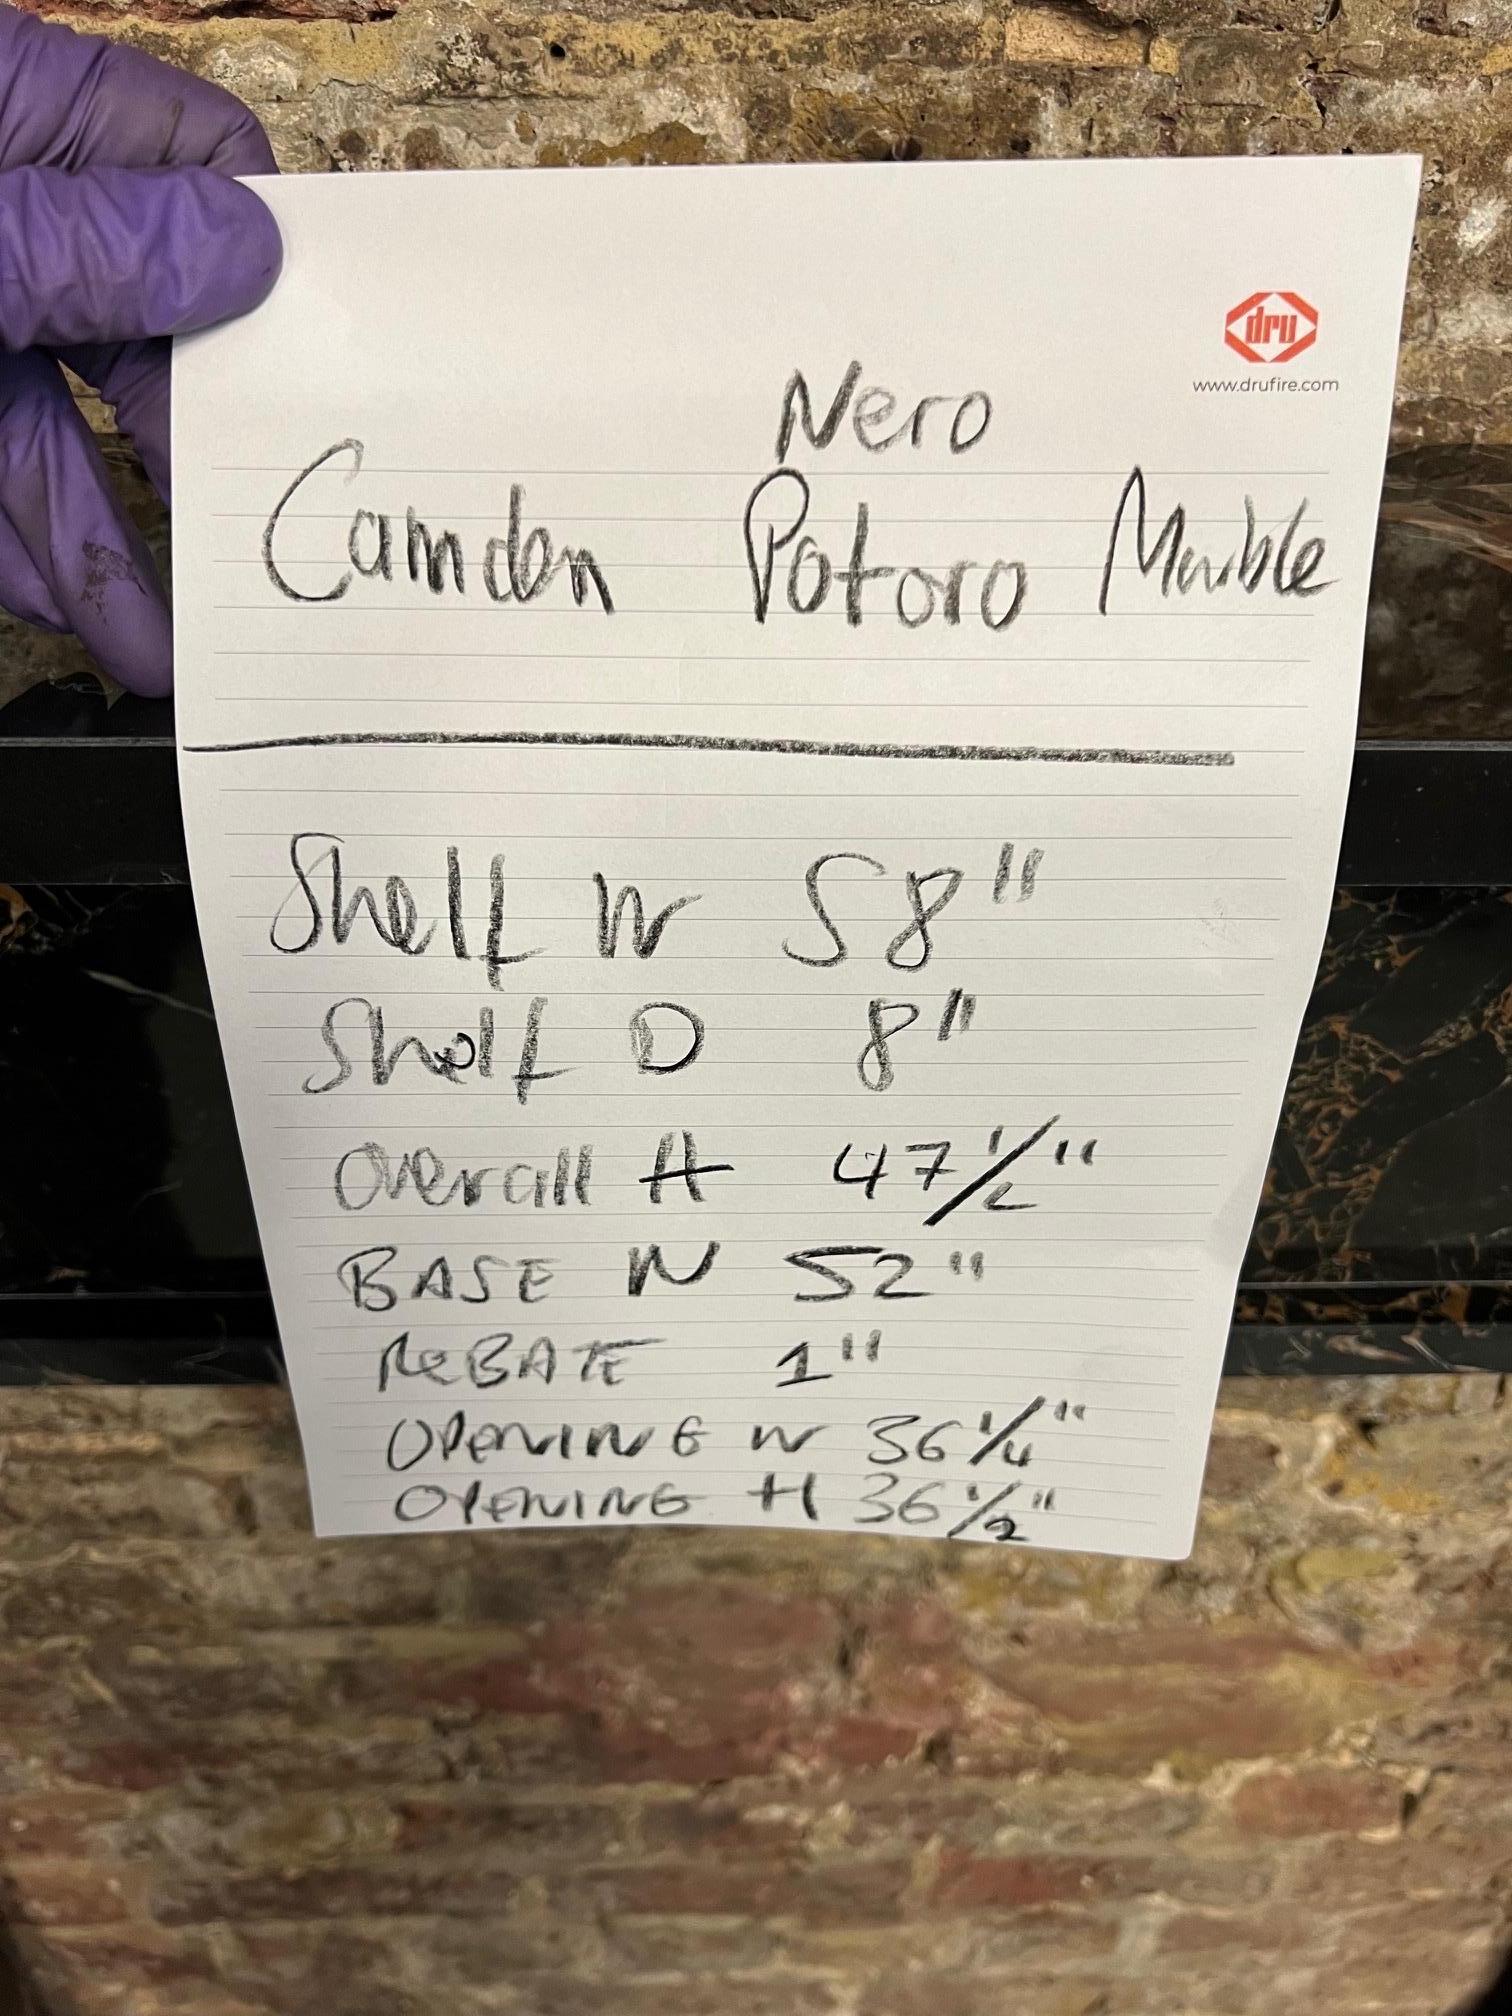 dru
www.drufire.com
Nero
Camden Potoro Marble
Shelf W 58"
Shelf D 8"
Overall H 47 1/2"
BASE W 52"
ReBATE 1"
OPENING W 36 1/4"
OPENING H 36 1/2"